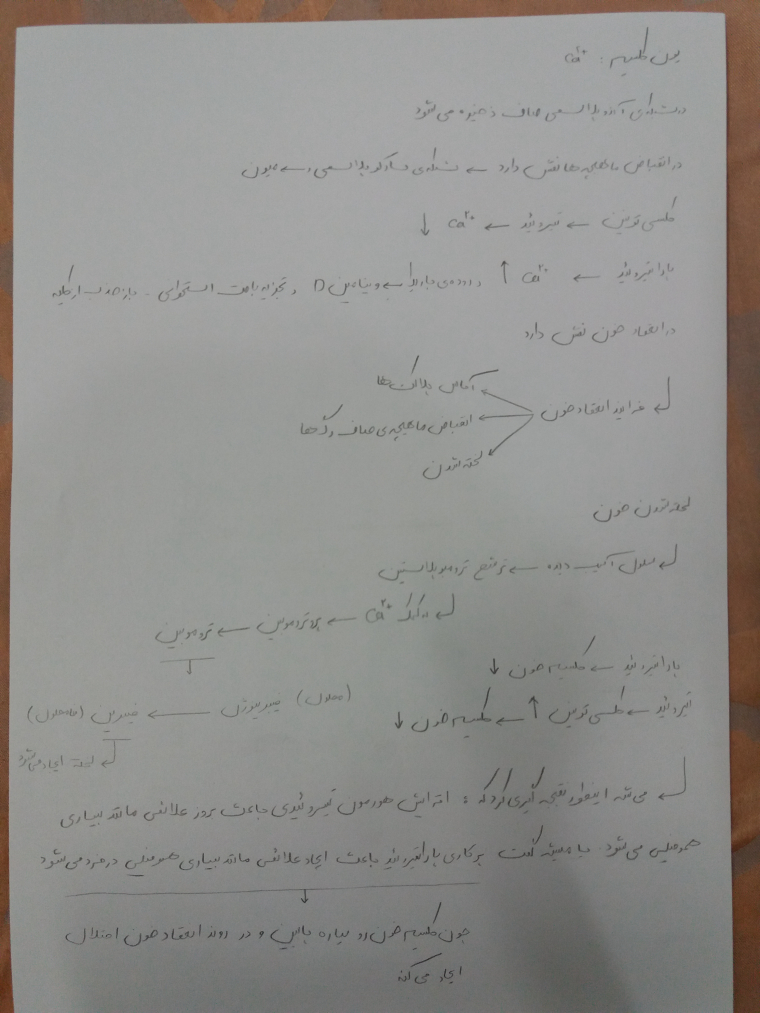 یون کلسیم : Ca²⁺
در شبکه‌ی آندوپلاسمی صاف ذخیره می‌شود
در انقباض ماهیچه‌ها نقش دارد ← شبکه‌ی سارکوپلاسمی
کلسی تونین ← تیروئید ← Ca²⁺ ↓
پاراتیروئید ← Ca²⁺ ↑ در روده‌ی باریک ویتامین D و تجزیه بافت استخوانی - بازجذب از کلیه
در انعقاد خون نقش دارد
فرایند انعقاد خون
آماس پلاکت‌ها
انقباض ماهیچه‌ی صاف رگ‌ها
لخته شدن
لخته شدن خون
سلول آسیب دیده ← ترشح ترومبوپلاستین
به کمک Ca²⁺ ← پروترومبین ← ترومبین
پاراتیروئید ← کلسیم خون ↓
(محلول) فیبرینوژن ← فیبرین (نامحلول)
تیروئید ← کلسی تونین ↑ ← کلسیم خون ↓
لخته ایجاد می‌شود
می‌شه اینطور نتیجه گیری کرد که : افزایش هورمون تیروئیدی باعث بروز علائمی مانند بیماری
هموفیلی می‌شود. یا میشه گفت پرکاری پاراتیروئید باعث ایجاد علائمی مانند بیماری هموفیلی در فرد می‌شود
چون کلسیم خون رو میاره پایین و در روند انعقاد خون اختلال
ایجاد می‌کند